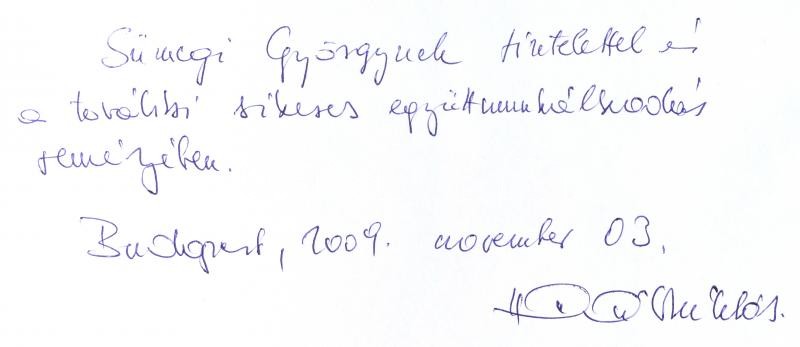 Sümegi Györgynek tisztelettel és
a további sikeres együttmunkálkodás
reményében.
Budapest, 2009. november 03.
Miklós.